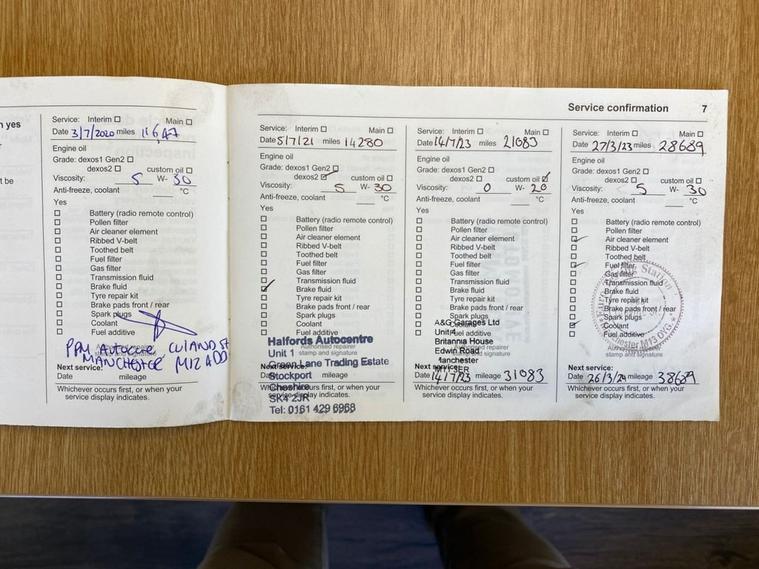 n yes
t be
Service: Interim Main
Date 3/7/2020 miles
Engine oil
Grade: dexos1 Gen2
dexos2 custom oil
Viscosity: 5 W- 30
Anti-freeze, coolant °C
Yes
Battery (radio remote control)
Pollen filter
Air cleaner element
Ribbed V-belt
Toothed belt
Fuel filter
Gas filter
Transmission fluid
Brake fluid
Tyre repair kit
Brake pads front / rear
Spark plugs
Coolant
Fuel additive
MANCHESTER M12
Next service:
Date mileage
Whichever occurs first, or when your
service display indicates.
Service confirmation 7
Service: Interim Main
Date 5/7/21 miles 14280
Engine oil
Grade: dexos1 Gen2
dexos2 custom oil
Viscosity: 5 W- 30
Anti-freeze, coolant °C
Yes
Battery (radio remote control)
Pollen filter
Air cleaner element
Ribbed V-belt
Toothed belt
Fuel filter
Gas filter
Transmission fluid
Brake fluid
Tyre repair kit
Brake pads front / rear
Spark plugs
Coolant
Fuel additive
Halfords Autocentre
Authorised repairer
Unit 1 stamp and signature
Green Lane Trading Estate
Next service:
Stockport
Date mileage
Cheshire
Whichever occurs first, or when your
SK4 2JR
service display indicates.
Tel: 0161 429 6968
Service: Interim Main
Date 14/7/23 miles 21083
Engine oil
Grade: dexos1 Gen2
dexos2 custom oil
Viscosity: 0 W- 20
Anti-freeze, coolant °C
Yes
Battery (radio remote control)
Pollen filter
Air cleaner element
Ribbed V-belt
Toothed belt
Fuel filter
Gas filter
Transmission fluid
Brake fluid
Tyre repair kit
Brake pads front / rear
Spark plugs
A&G Garages Ltd
Coolant
Unit 4
Fuel additive
Britannia House
Edwin Road
Manchester
Next service:
Date 14/7/23 mileage 31083
Whichever occurs first, or when your
service display indicates.
Service: Interim Main
Date 27/3/23 miles 28689
Engine oil
Grade: dexos1 Gen2
dexos2 custom oil
Viscosity: 5 W- 30
Anti-freeze, coolant °C
Yes
Battery (radio remote control)
Pollen filter
Air cleaner element
Ribbed V-belt
Toothed belt
Fuel filter
Gas filter
Transmission fluid
Brake fluid
Tyre repair kit
Brake pads front / rear
Spark plugs
Coolant
Fuel additive
Authorised repairer
stamp and signature
Next service:
Date 26/3/24 mileage 38689
Whichever occurs first, or when your
service display indicates.